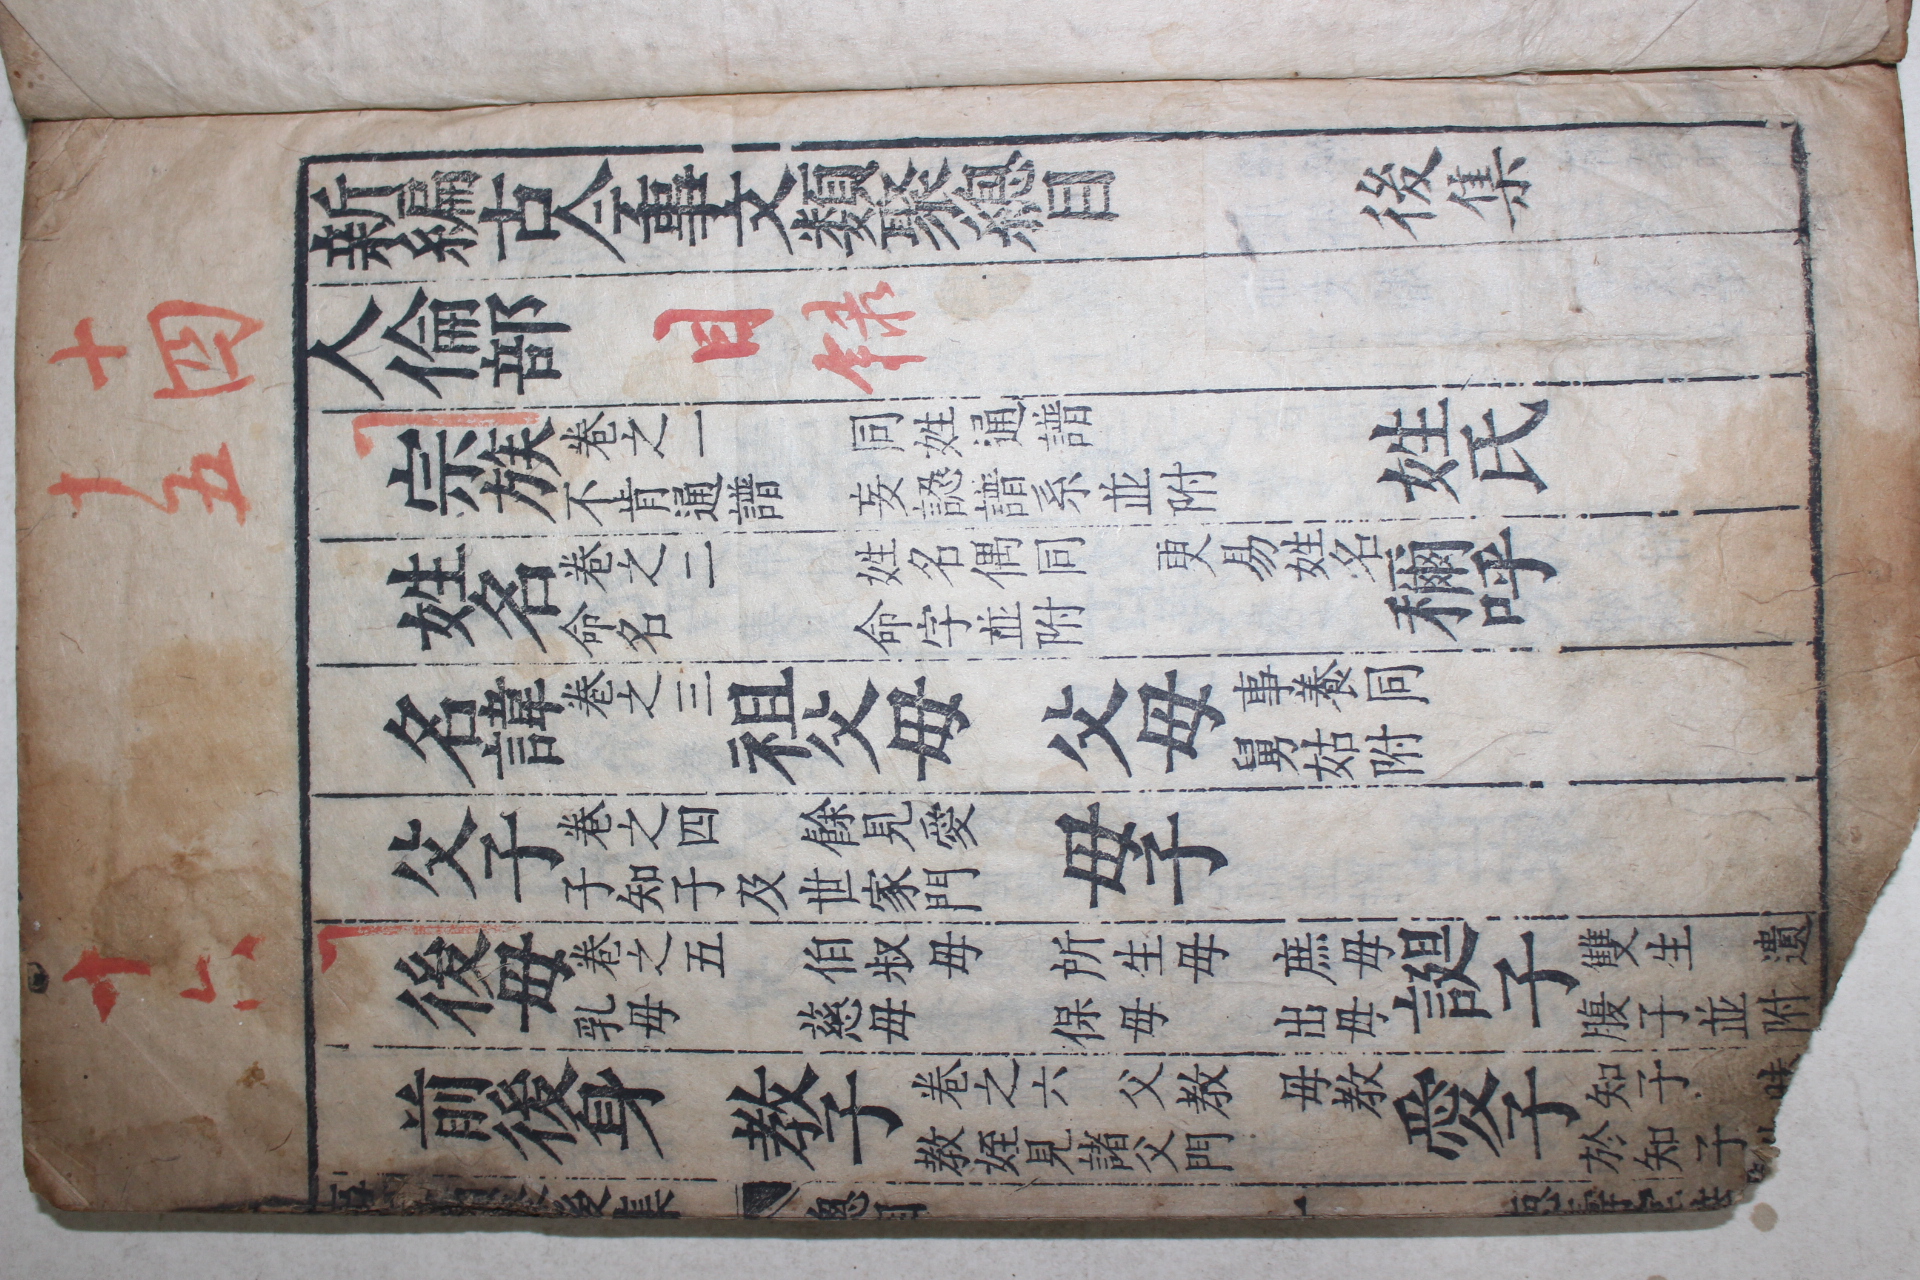 十四
十五
十六
新編古今事文類聚總目 後集
人倫部 目录
宗族 卷之一 同姓通譜 不肯通譜 妄認譜系並附 姓氏
姓名 卷之二 姓名偶同 更易姓名 命名 命字並附 稱呼
名諱 卷之三 祖父母 父母 事養同 舅姑附
父子 卷之四 餘見愛 子知子及世家門 母子
後母 卷之五 伯叔母 所生母 庶母 乳母 慈母 保母 出母 誕子 雙生 遺腹子並附
前後身 教子 卷之六 父教 母教 教姪見諸父門 愛子 知子 昧於知子
後集
總目
一